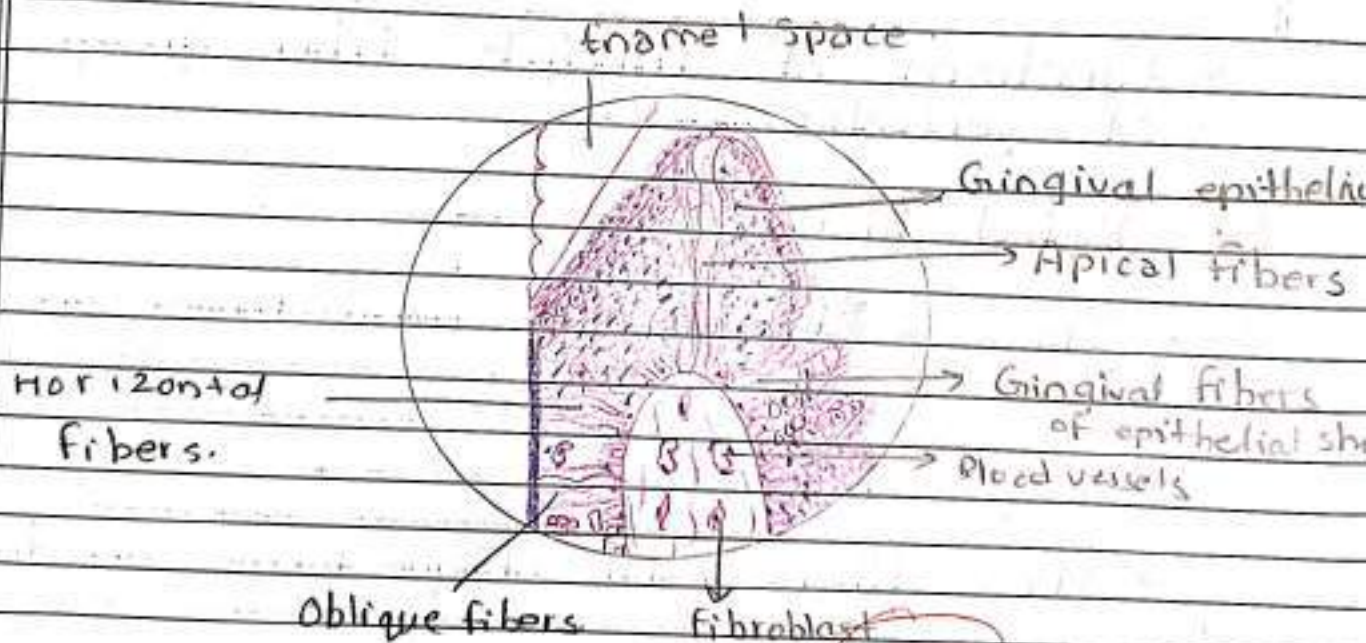 Enamel Space
Gingival epitheliu
Apical fibers
Horizontal
fibers.
Gingival fibers
of epithelial she
Blood vessels
Oblique fibers
Fibroblast